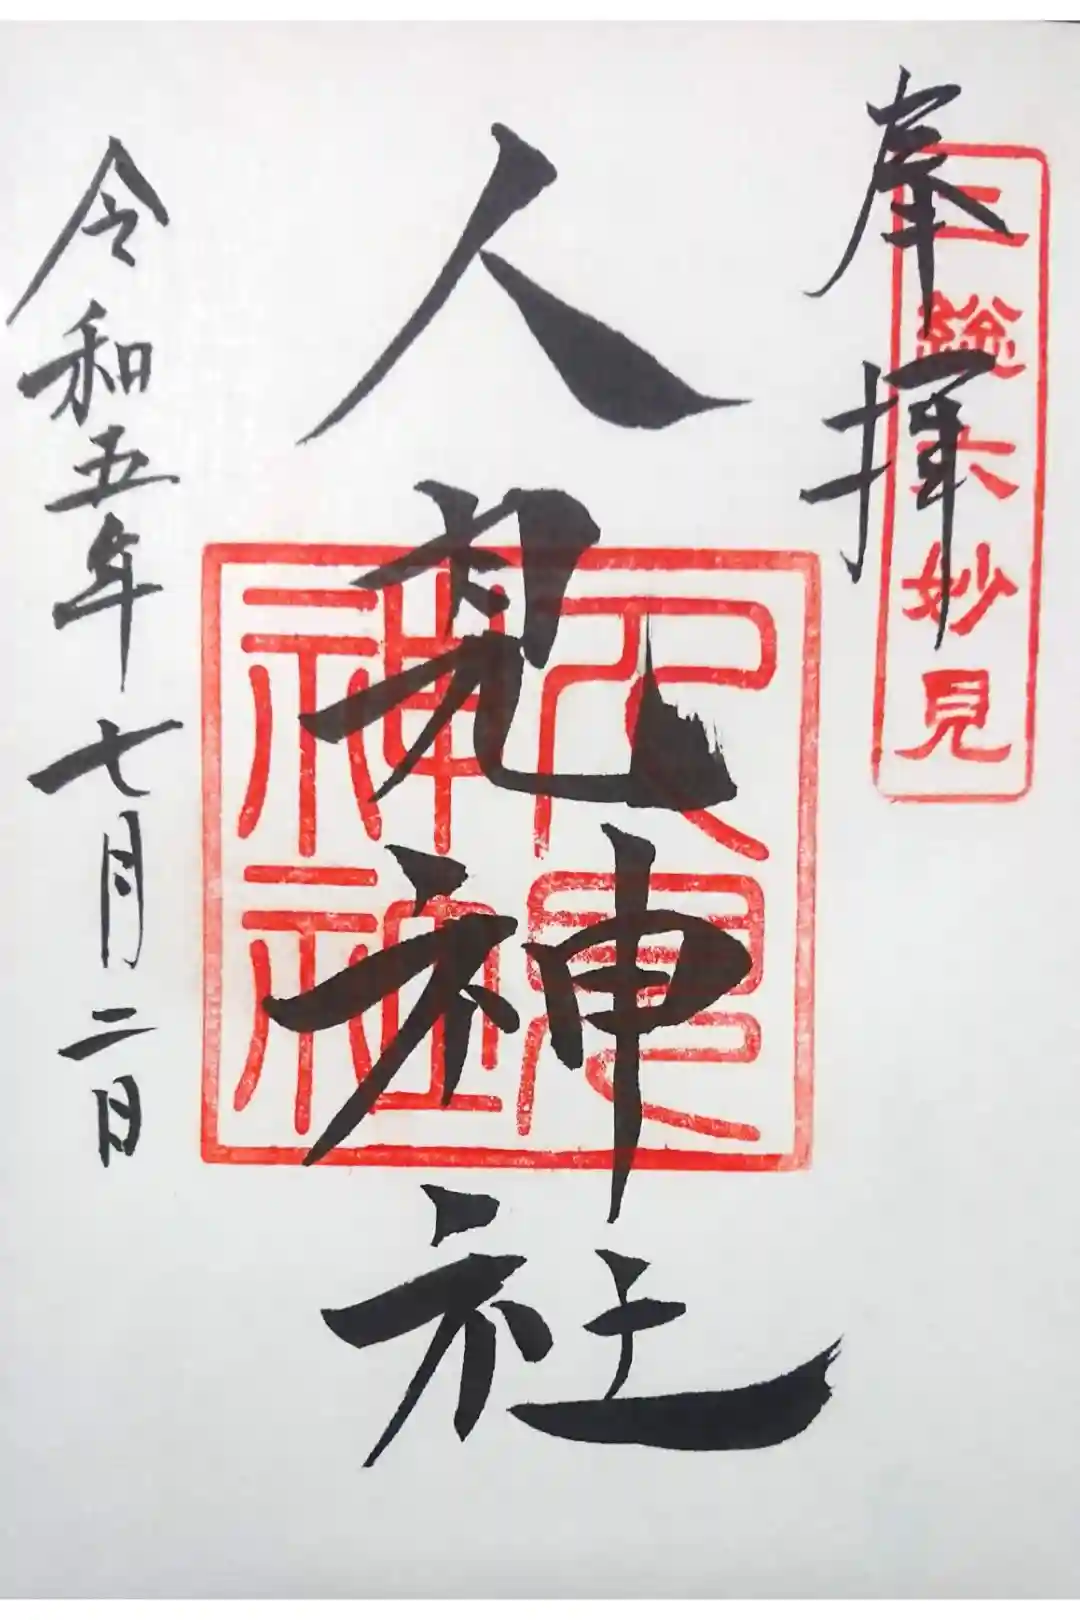 奉拝
三総大妙見
人見神社
人見神社
令和五年七月二日